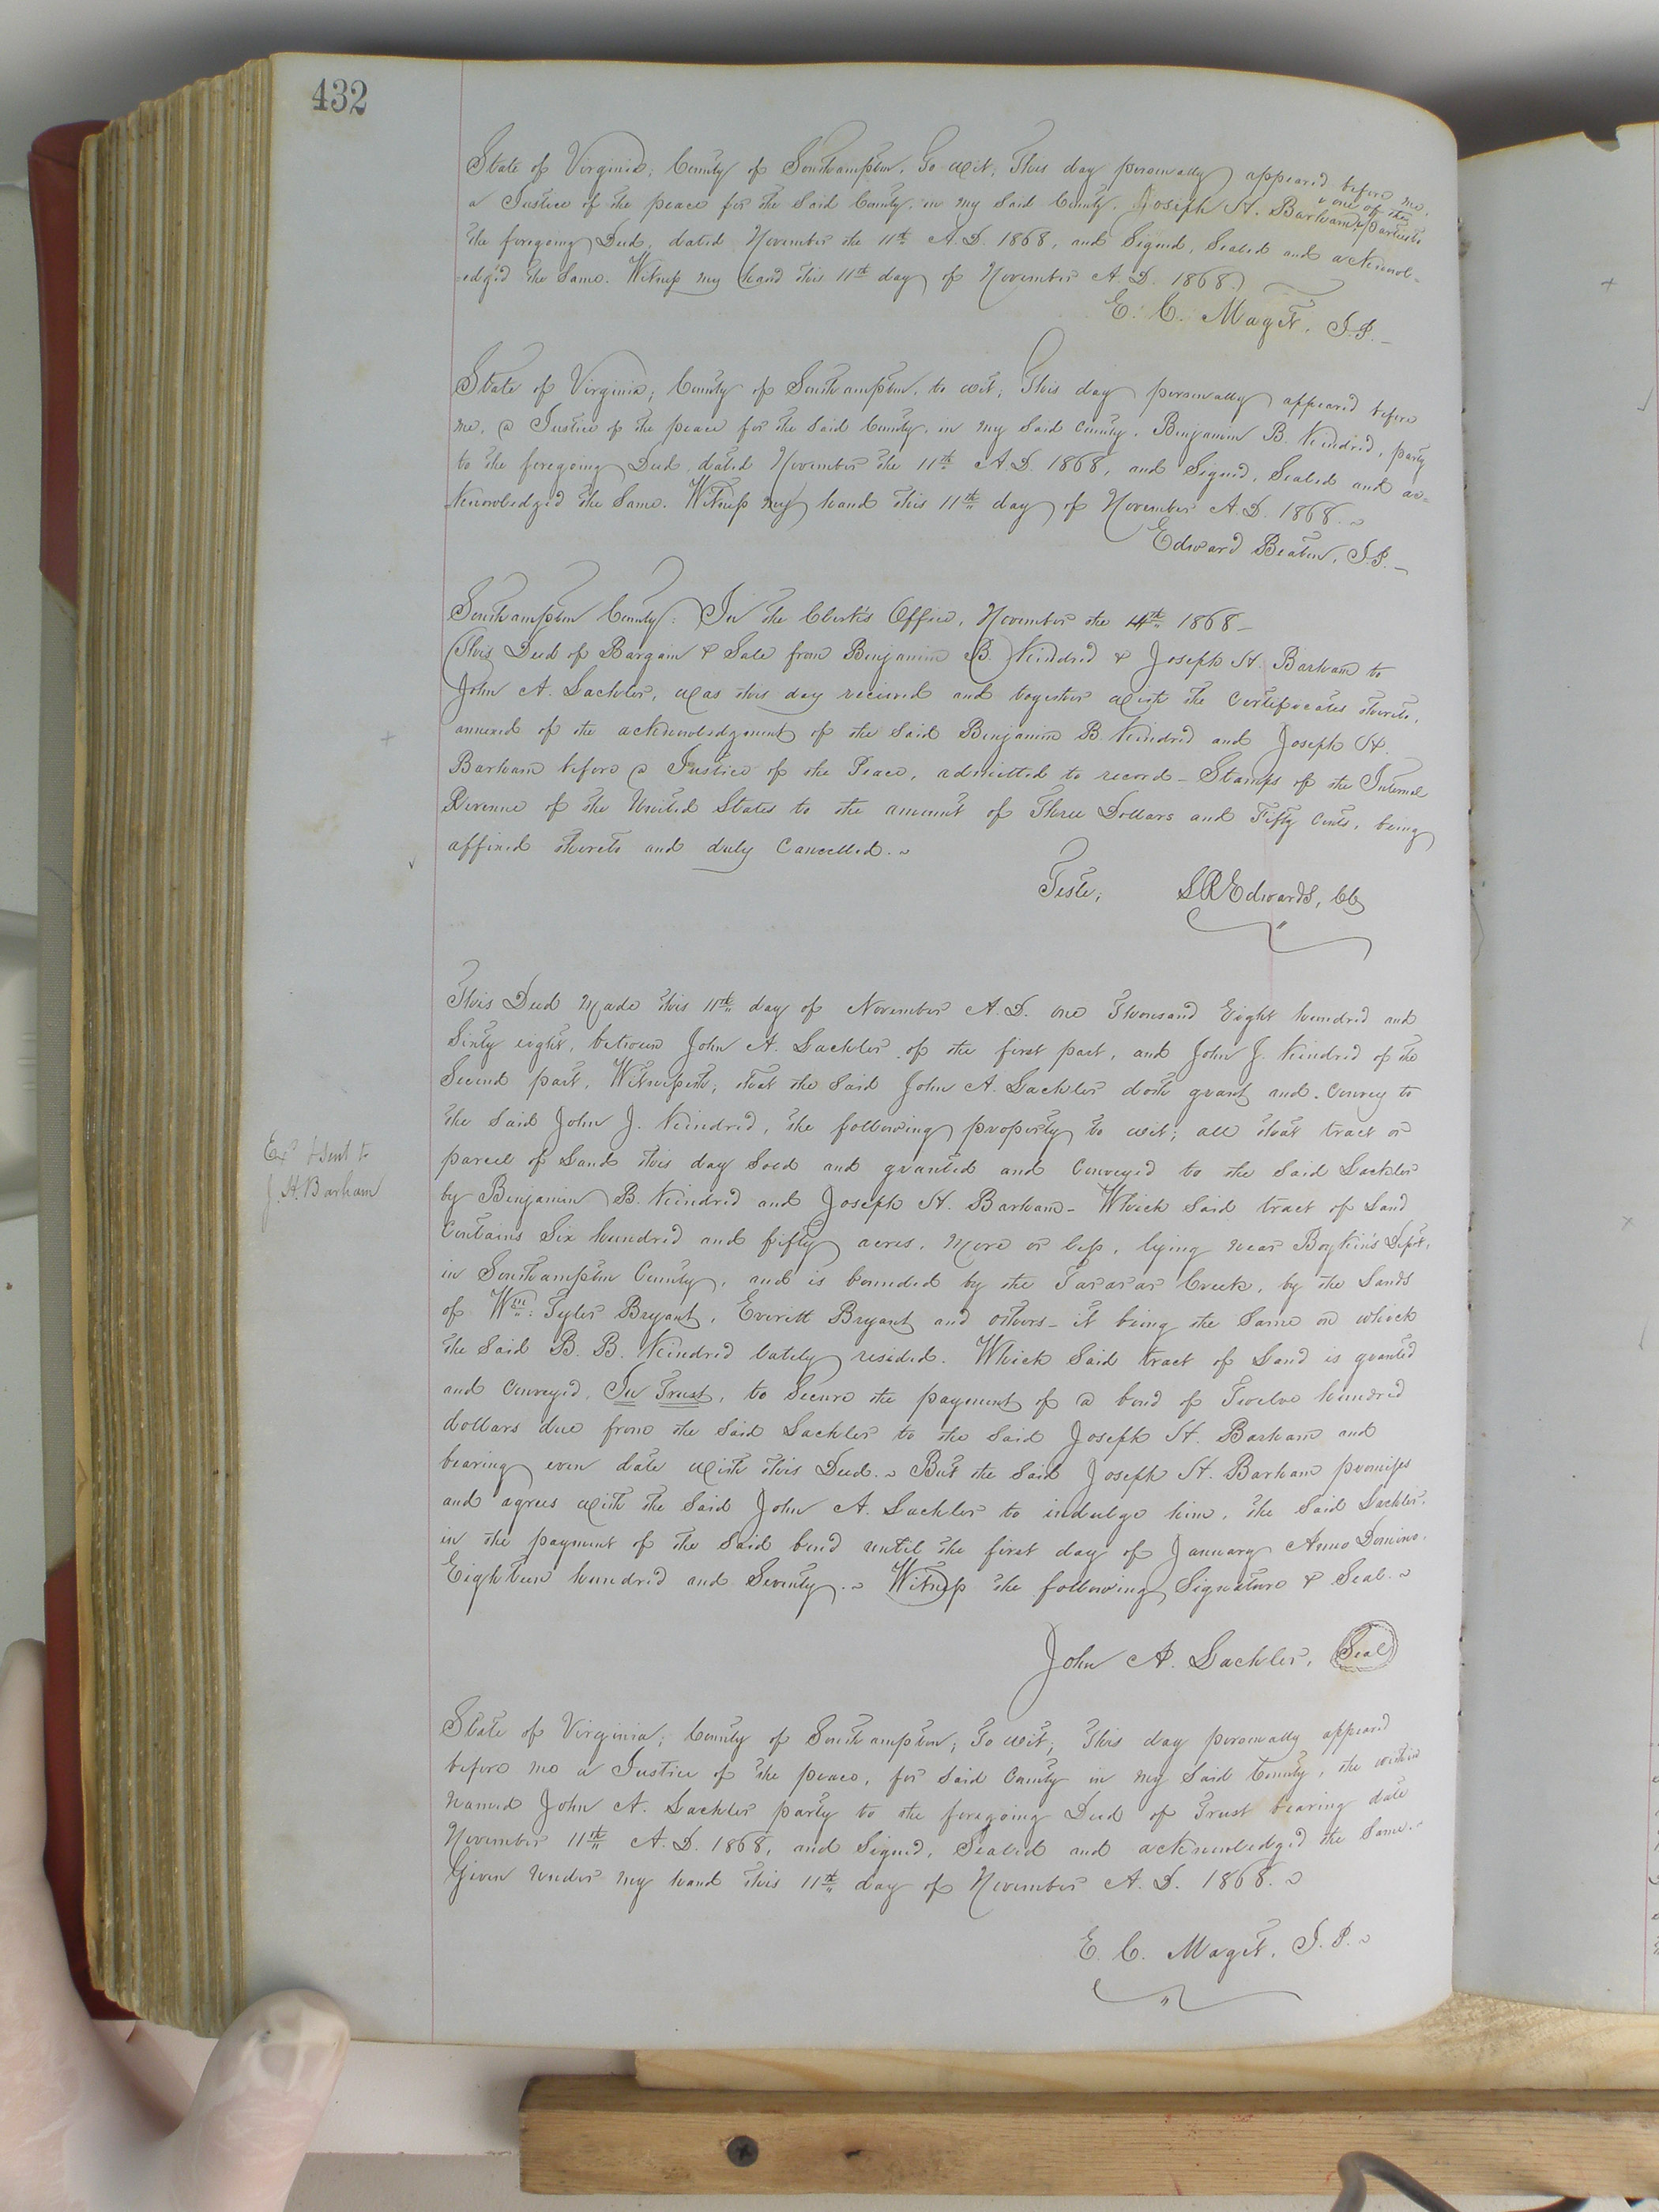 432
State of Virginia; County of Southampton, To wit; This day personally appeared before me,
a Justice of the peace for the Said County, in my Said County, Joseph H. Barham, one of the parties to
the foregoing Deed, dated November the 11th A.D. 1868, and Signed, Sealed and acknowl-
-edged the Same. Witness my hand this 11th day of November A.D. 1868.
E. C. Maget, J.P.
State of Virginia; County of Southampton, to wit; This day personally appeared before
me, a Justice of the peace for the Said County, in my Said County, Benjamin B. Kindred, party
to the foregoing Deed, dated November the 11th A.D. 1868, and Signed, Sealed and ac-
-knowledged the Same. Witness my hand this 11th day of November A.D. 1868.
Edward Beaton, J.P.
Southampton County: In the Clerk's Office, November the 14th 1868
This Deed of Bargain & Sale from Benjamin B. Kindred & Joseph H. Barham to
John A. Lackler, was this day received and together with the certificates thereto,
annexed of the acknowledgment of the Said Benjamin B. Kindred and Joseph H.
Barham before a Justice of the Peace, admitted to record - Stamps of the Internal
Revenue of the United States to the amount of Three Dollars and Fifty Cents, being
affixed thereto and duly Cancelled.
Teste, L R Edwards, Clk
This Deed Made this 11th day of November A.D. one Thousand Eight hundred and
Sixty eight, between John A. Lackler of the first part, and John J. Kindred of the
Second part, Witnesseth, that the Said John A. Lackler doth grant and convey to
the Said John J. Kindred, the following property to wit; all that tract or
parcel of Land this day Sold and granted and Conveyed to the Said Lackler
by Benjamin B. Kindred and Joseph H. Barham - Which Said tract of Land
Contains Six hundred and fifty acres, More or less, lying near Boykin's Depot,
in Southampton County, and is bounded by the Tararar Creek, by the Lands
of Wm: Tyler Bryant, Everitt Bryant and others - it being the Same on which
the Said B. B. Kindred lately resided. Which Said tract of Land is granted
and Conveyed, In Trust, to Secure the payment of a bond of Twelve hundred
dollars due from the Said Lackler to the Said Joseph H. Barham and
bearing even date with this Deed. But the Said Joseph H. Barham promises
and agrees with the Said John A. Lackler to indulge him, the Said Lackler,
in the payment of the Said bond until the first day of January Anno Domino.
Eighteen hundred and Seventy. Witness the following Signature & Seal.
Exd & Sent to
J. H. Barham
John A. Lackler, Seal
State of Virginia; County of Southampton; To wit; This day personally appeared
before me a Justice of the peace, for Said County in my Said County, the within
Named John A. Lackler party to the foregoing Deed of Trust bearing date
November 11th A.D. 1868, and Signed, Sealed and acknowledged the Same.
Given under my hand this 11th day of November A.D. 1868.
E. C. Maget, J.P.